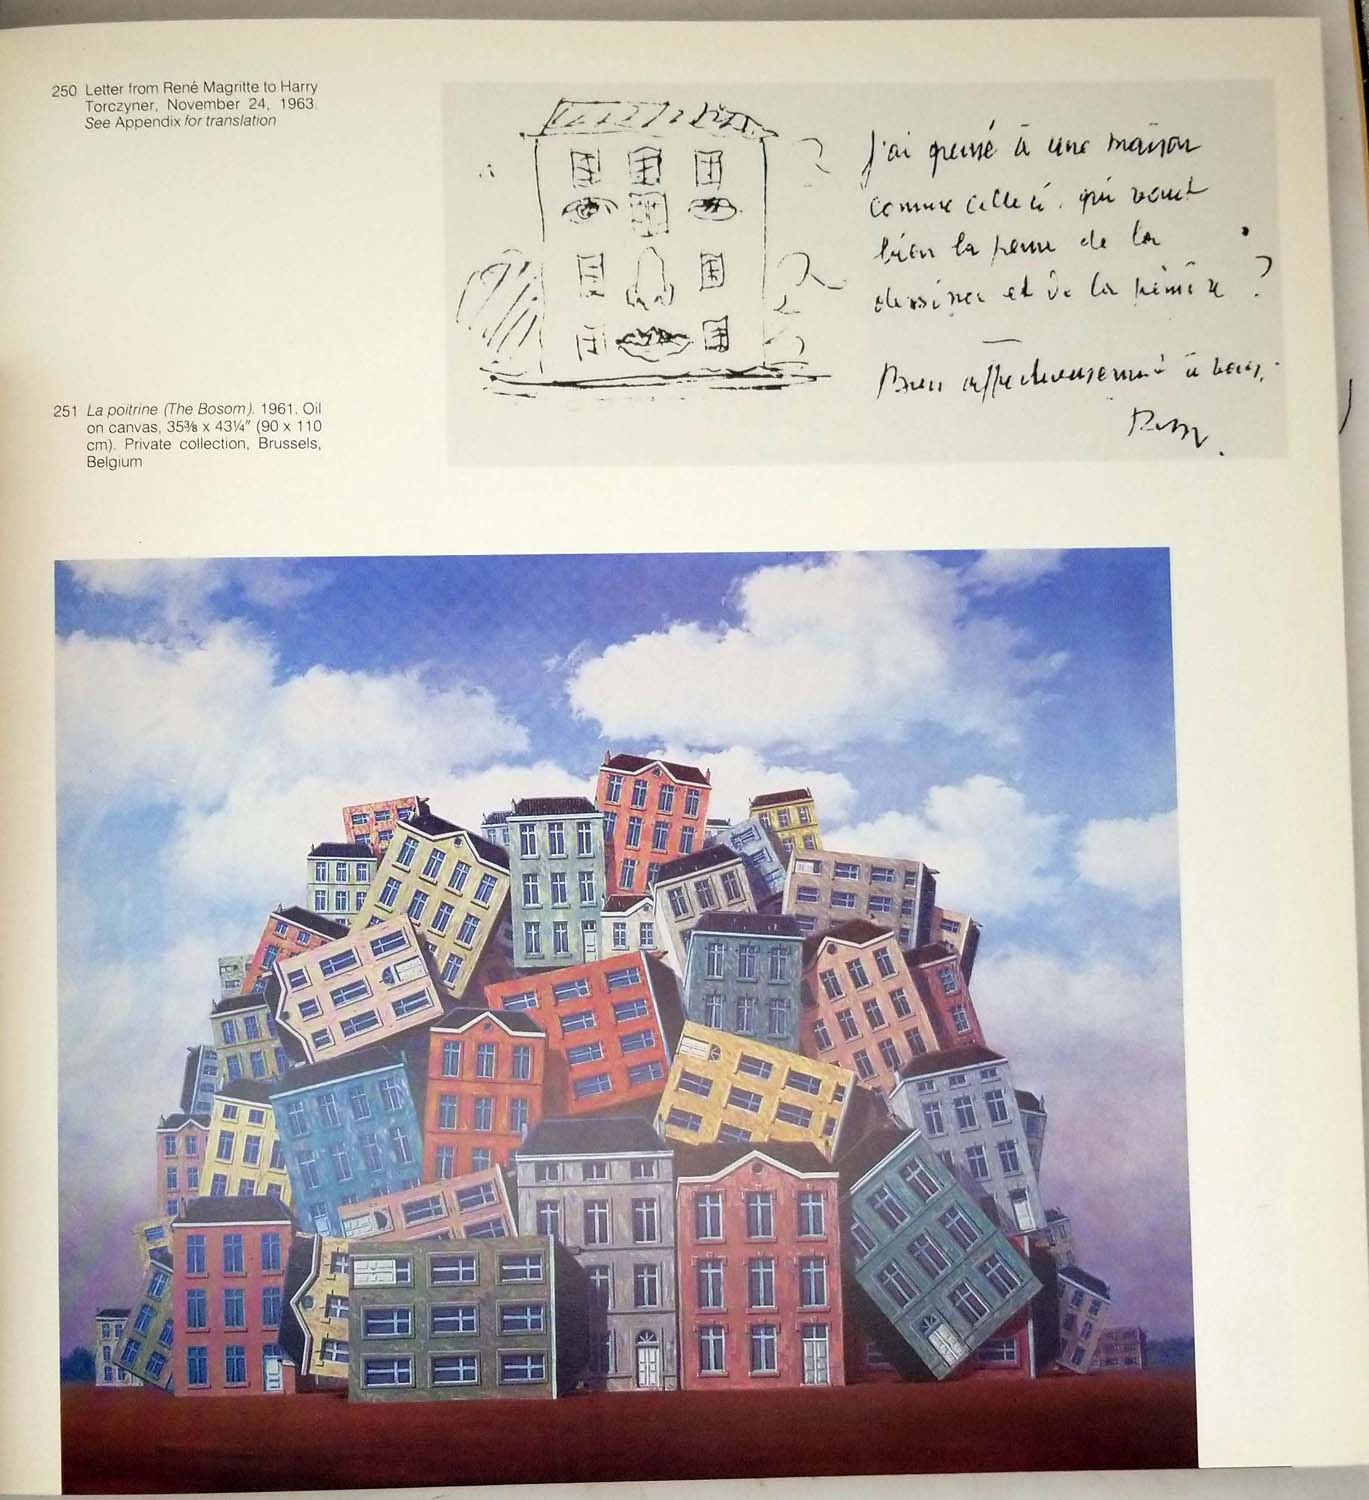 250 Letter from René Magritte to Harry
Torczyner, November 24, 1963.
See Appendix for translation
J'ai pensé à une maison
comme celle ci, qui vaut
bien la peine de la
dessiner et de la peindre ?
Bien affectueusement à vous,
251 La poitrine (The Bosom). 1961. Oil
on canvas, 35⅜ x 43¼" (90 x 110
cm). Private collection, Brussels,
Belgium